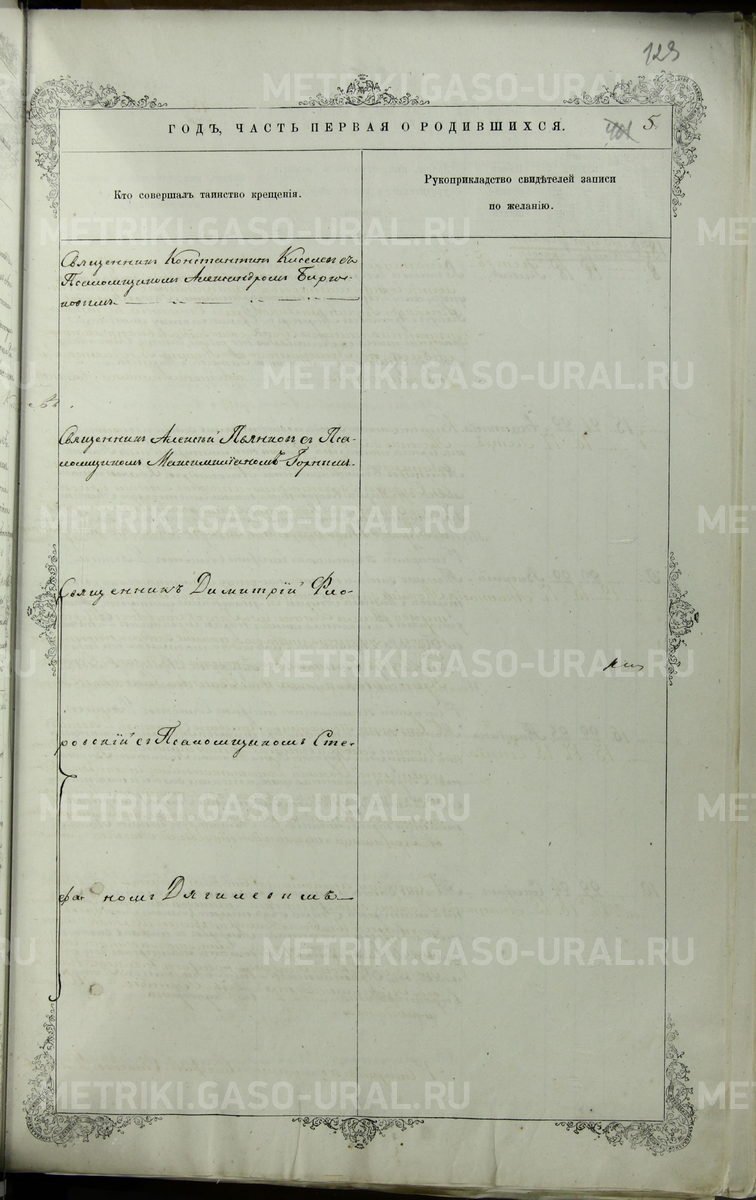 123
ГОДЪ, ЧАСТЬ ПЕРВАЯ О РОДИВШИХСЯ.
5.
Кто совершалъ таинство крещенія.
Рукоприкладство свидѣтелей записи
по желанію.
Священникъ Константинъ Киселевъ съ
Псаломщикомъ Александромъ
Священникъ Алексѣй Пьянковъ съ Пса-
ломщикомъ Максимиліаномъ Горнымъ.
Священникъ Димитрій Фло-
ровскій съ Псаломщикомъ Сте-
фа- номъ Дягилевымъ
METRIKI.GASO-URAL.RU